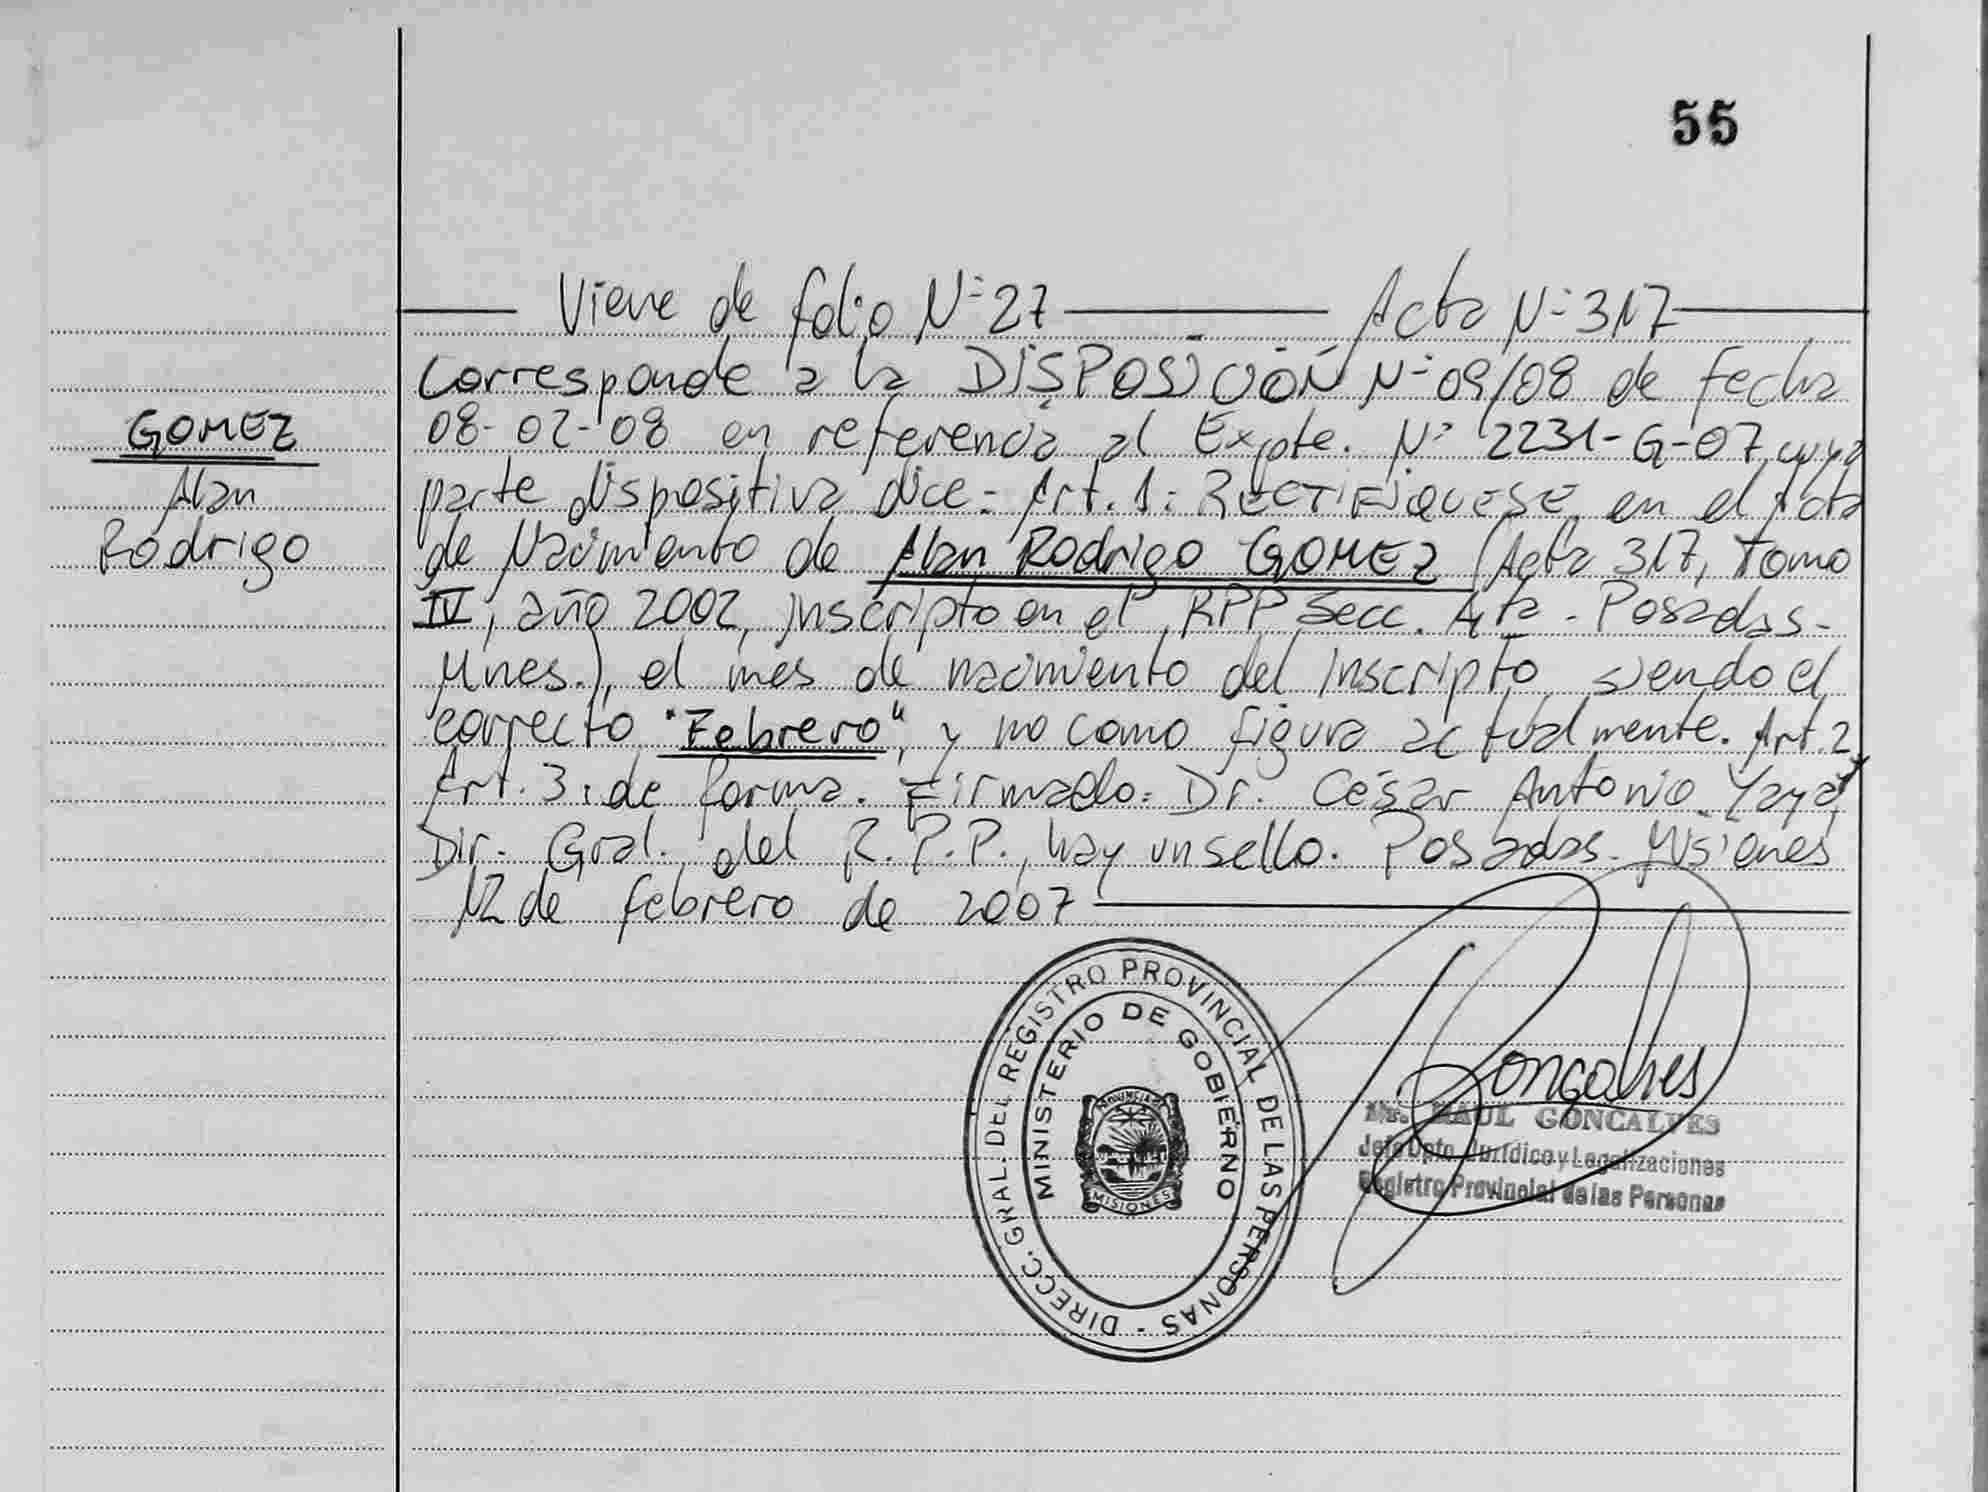 55
Viene de folio Nº 27 Acta Nº 317
Corresponde a la DISPOSICIÓN Nº 09/08 de fecha
GOMEZ
08-02-08 en referencia al Expte. Nº 2231-G-07, cuya
Alan
parte dispositiva dice: Art. 1: RECTIFIQUESE en el Acta
Rodrigo
de Nacimiento de Alan Rodrigo GOMEZ (Acta 317, Tomo
IV, año 2002, inscripto en el RPP Secc. 4ta - Posadas-
Mnes.), el mes de nacimiento del inscripto, siendo el
correcto "Febrero", y no como figura actualmente. Art. 2,
Art. 3: de forma. Firmado: Dr. César Antonio Yaya,
Dir. Gral. del R.P.P., hay un sello. Posadas. Misiones
12 de febrero de 2007
DIRECC. GRAL. DEL REGISTRO PROVINCIAL DE LAS PERSONAS -
MINISTERIO DE GOBIERNO
PROVINCIA DE
MISIONES
Gonçalves
RAUL GONCALVES
Jefe Dpto. Jurídico y Legalizaciones
Registro Provincial de las Personas